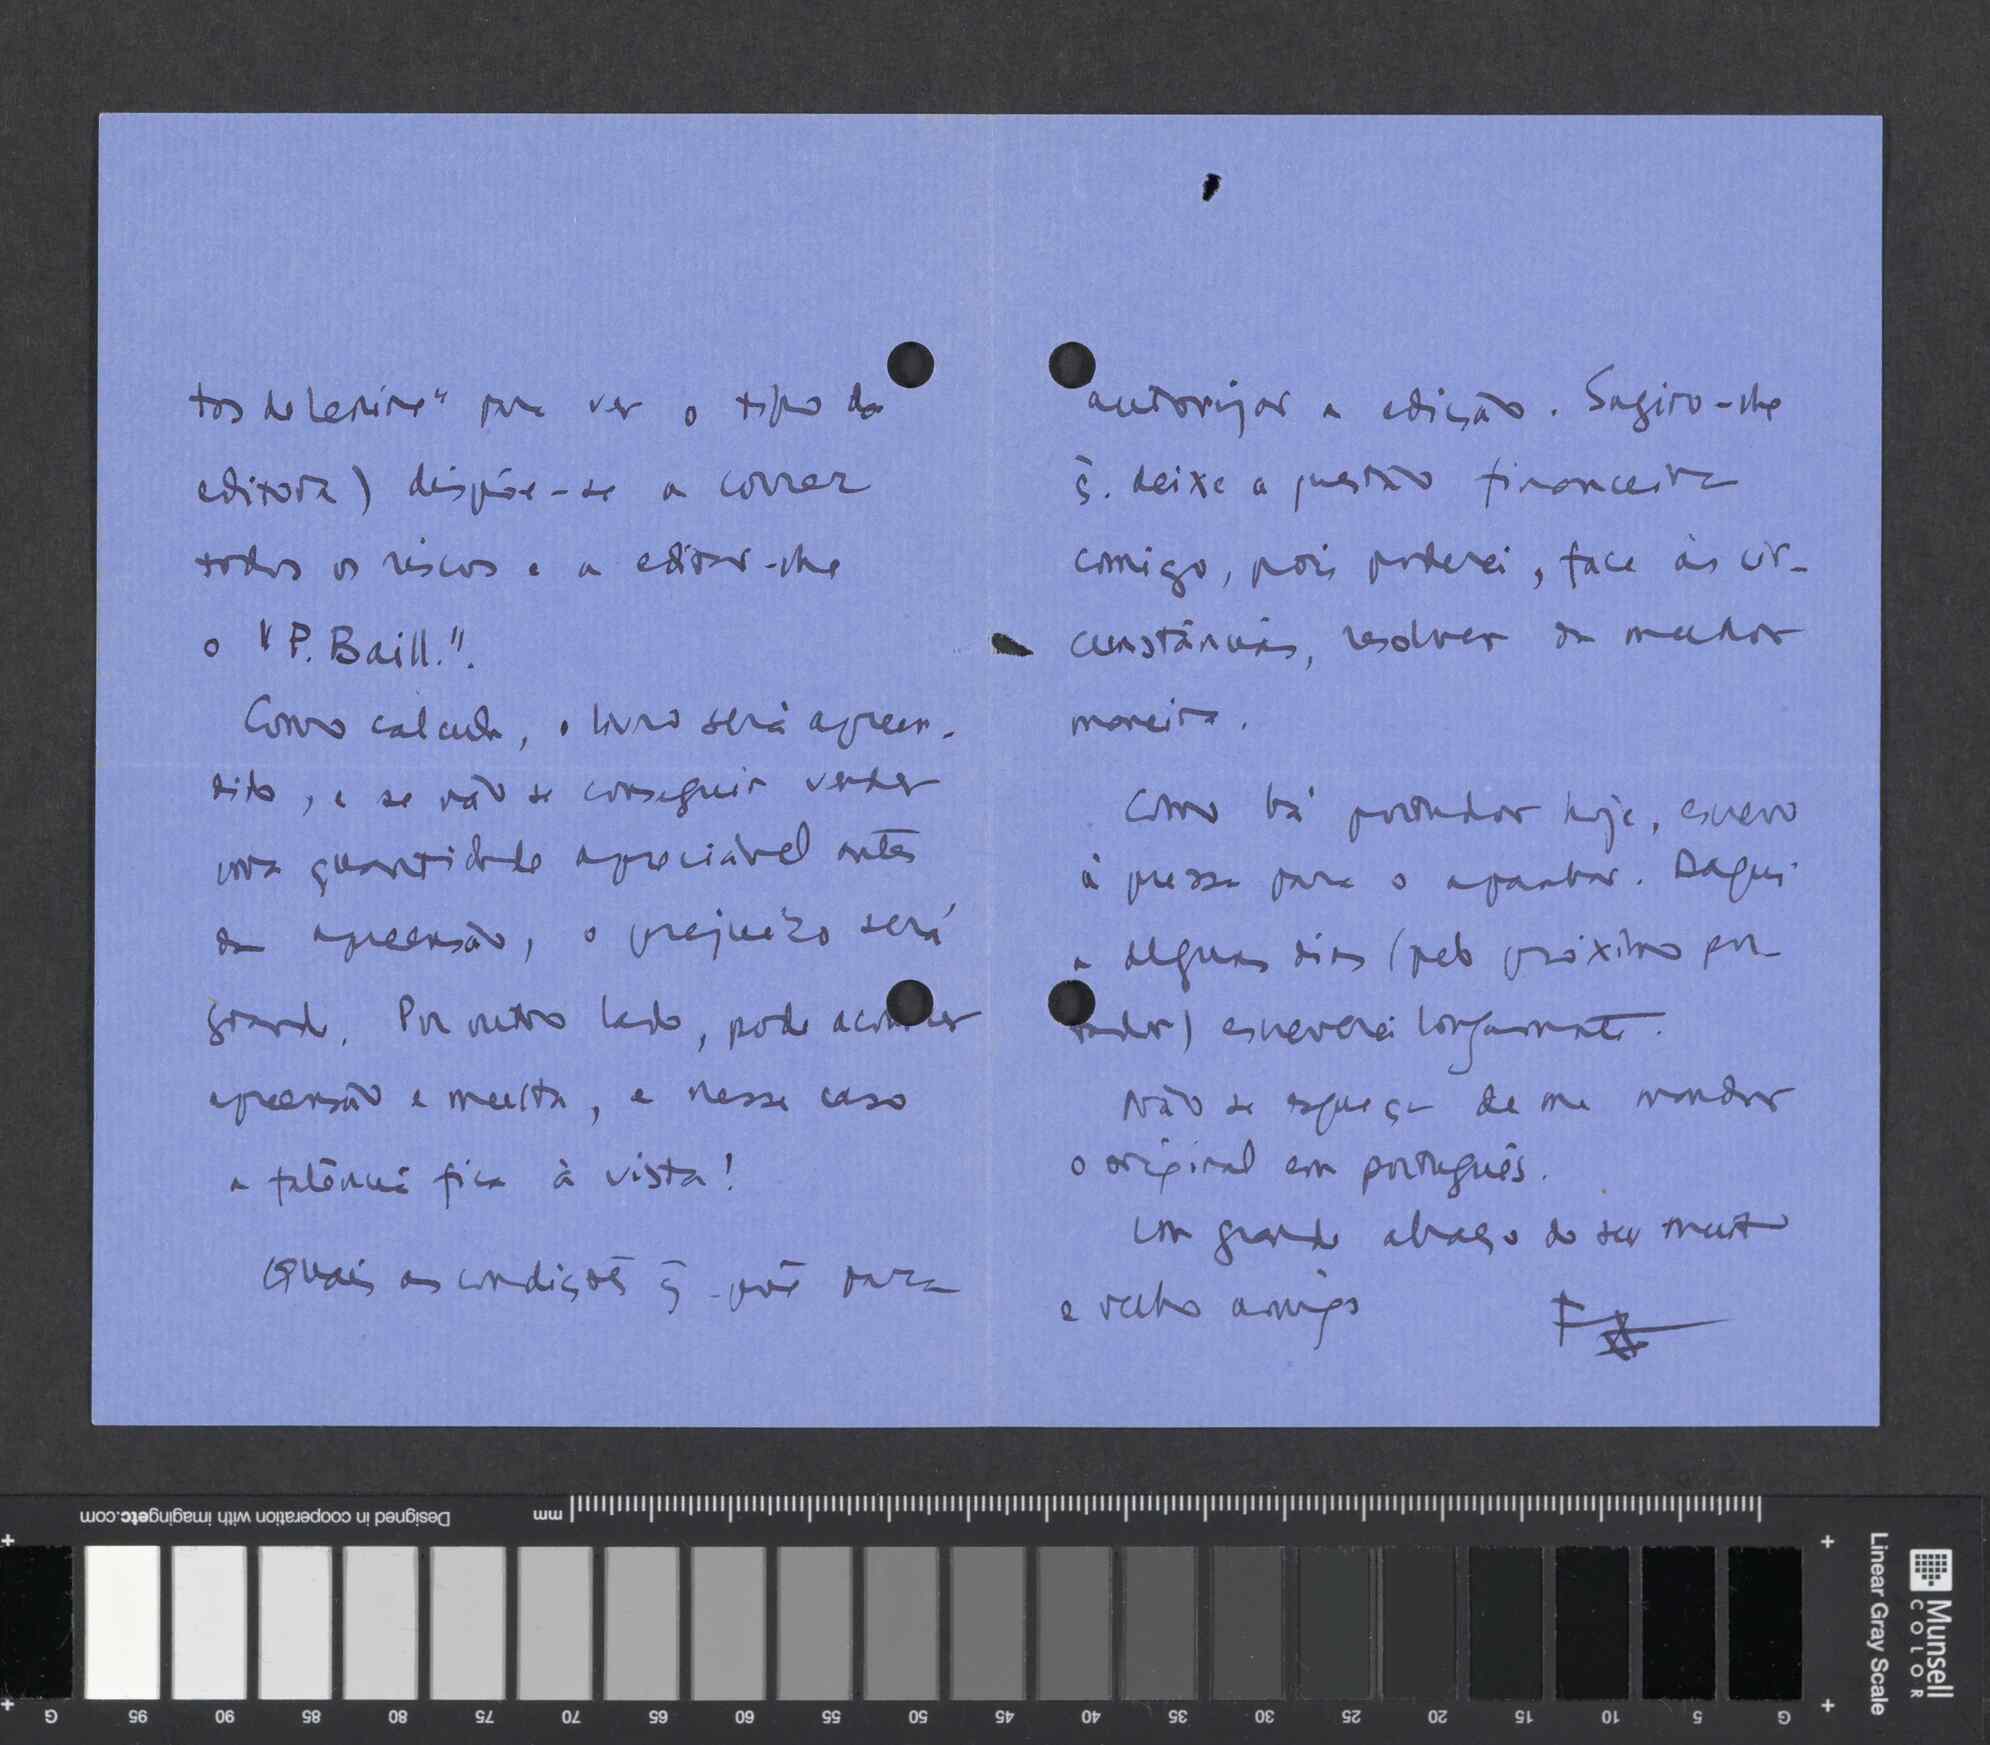 tos de Lenine" para ver o tipo da
editora) dispõe-se a correr
todos os riscos e a editar-lhe
o "P. Baill.".
Como calcula, o livro será apreen-
dido, e se não se conseguir vender
uma quantidade apreciável antes
da apreensão, o prejuízo será
grande. Por outro lado, pode acontecer
apreensão e multa, e nesse caso
a falência fica à vista!
Quais as condições q̃ põe para
autorizar a edição. Sugiro-lhe
q̃. deixe a questão financeira
comigo, pois poderei, face às cir-
cunstâncias, resolver da melhor
maneira.
Como há portador hoje, escrevo
à pressa para o apanhar. Daqui
a alguns dias (pelo próximo por-
tador) escreverei longamente.
Não se esqueça de me mandar
o original em português.
Um grande abraço do seu muito
e velho amigo
Designed in cooperation with imagingetc.com
mm
Munsell
COLOR
Linear Gray Scale
G 95 90 85 80 75 70 65 60 55 50 45 40 35 30 25 20 15 10 5 G